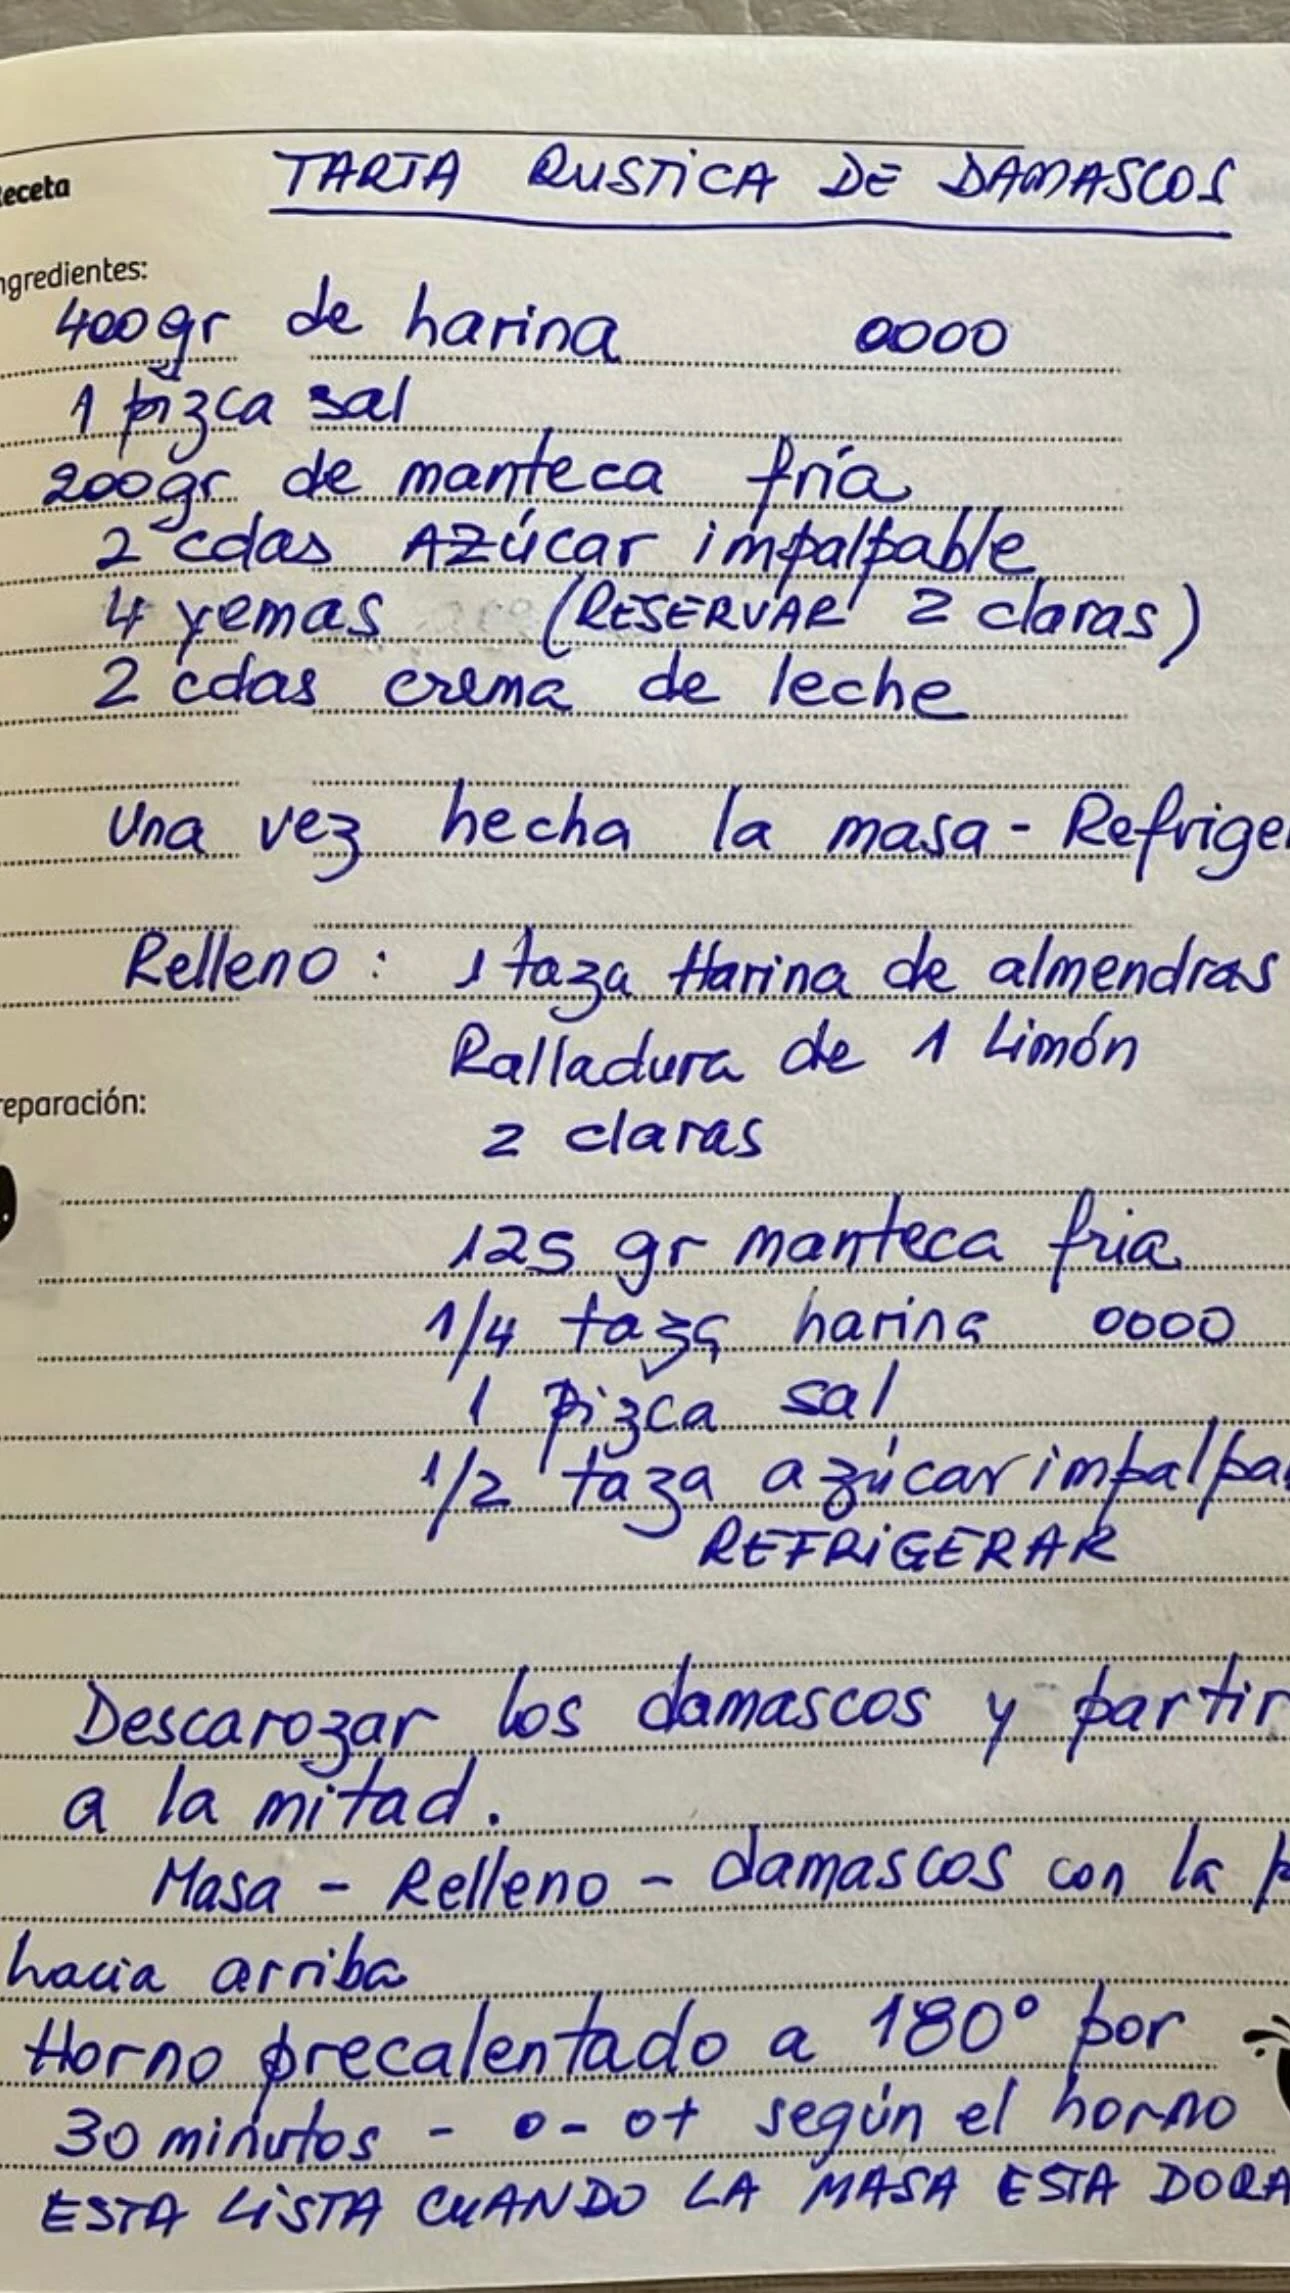 eceta
TARTA RUSTICA DE DAMASCOS
ngredientes:
400gr de harina 0000
1 pizca sal
200gr de manteca fría
2 cdas AZÚcar impalpable
4 yemas (RESERVAR 2 claras)
2 cdas crema de leche
Una vez hecha la masa - Refrige
Relleno: 1 taza Harina de almendras
Ralladura de 1 Limón
reparación:
2 claras
125 gr manteca fria
1/4 taza harina 0000
1 pizca sal
1/2 taza azúcar impalpa
REFRIGERAR
Descarozar los damascos y partir
a la mitad.
Masa - Relleno - damascos con la p
hacia arriba
Horno precalentado a 180° por
30 minutos - o- o+ según el horno
ESTA LISTA CUANDO LA MASA ESTA DORA